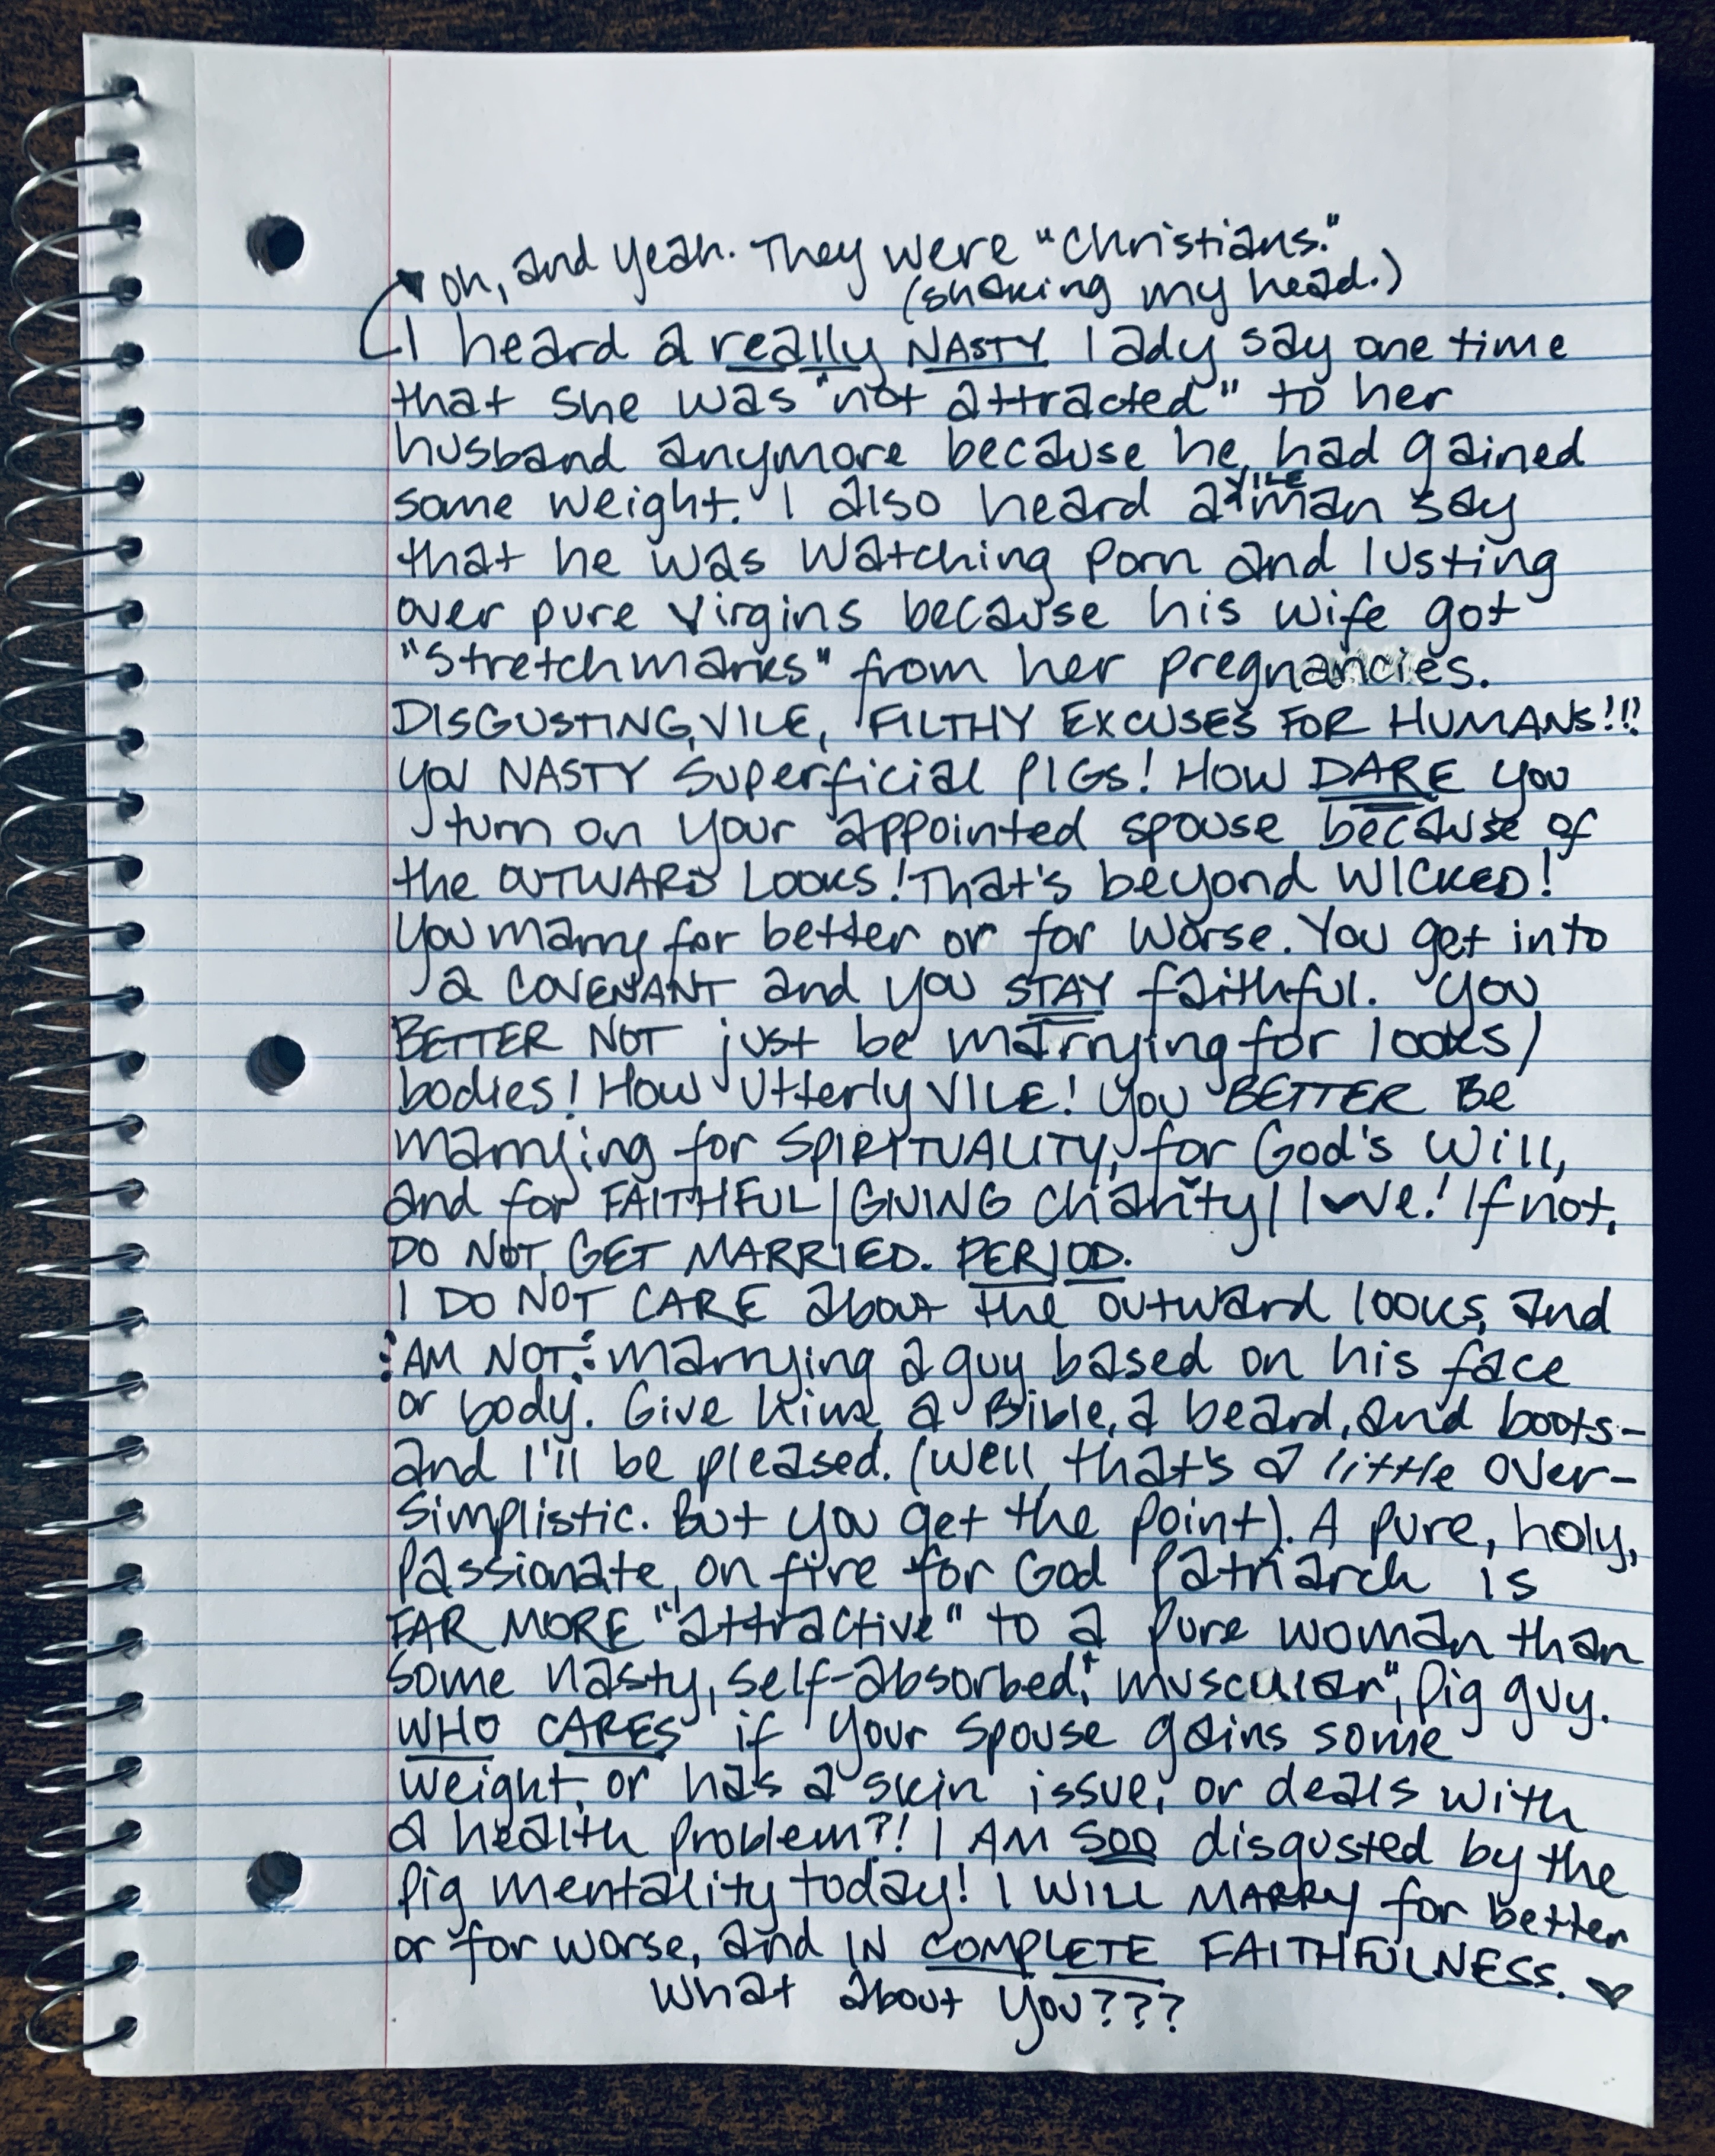 oh, and yeah. They were "Christians."
(shaking my head.)
I heard a really NASTY lady say one time
that she was "not attracted" to her
husband anymore because he had gained
some weight. I also heard a VILE man say
that he was watching porn and lusting
over pure virgins because his wife got
"stretchmarks" from her pregnancies.
DISGUSTING, VILE, FILTHY EXCUSES FOR HUMANS!!!
You NASTY superficial PIGS! HOW DARE you
turn on your appointed spouse because of
the OUTWARD LOOKS! That's beyond WICKED!
You marry for better or for worse. You get into
a COVENANT and you STAY faithful. You
BETTER NOT just be marrying for looks/
bodies! How utterly VILE! You BETTER BE
marrying for SPIRITUALITY, for God's will,
and for FAITHFUL/GIVING charity/love! If not,
DO NOT GET MARRIED. PERIOD.
I DO NOT CARE about the outward looks, and
AM NOT marrying a guy based on his face
or body. Give him a Bible, a beard, and boots-
and I'll be pleased. (Well, that's a little over-
simplistic. But you get the point). A pure, holy,
passionate, on fire for God patriarch is
FAR MORE "attractive" to a pure woman than
some nasty, self-absorbed, "muscular", pig guy.
WHO CARES if your spouse gains some
weight, or has a skin issue, or deals with
a health problem?! I AM SOO disgusted by the
pig mentality today! I WILL MARRY for better
or for worse, and IN COMPLETE FAITHFULNESS. ♥
What about you???